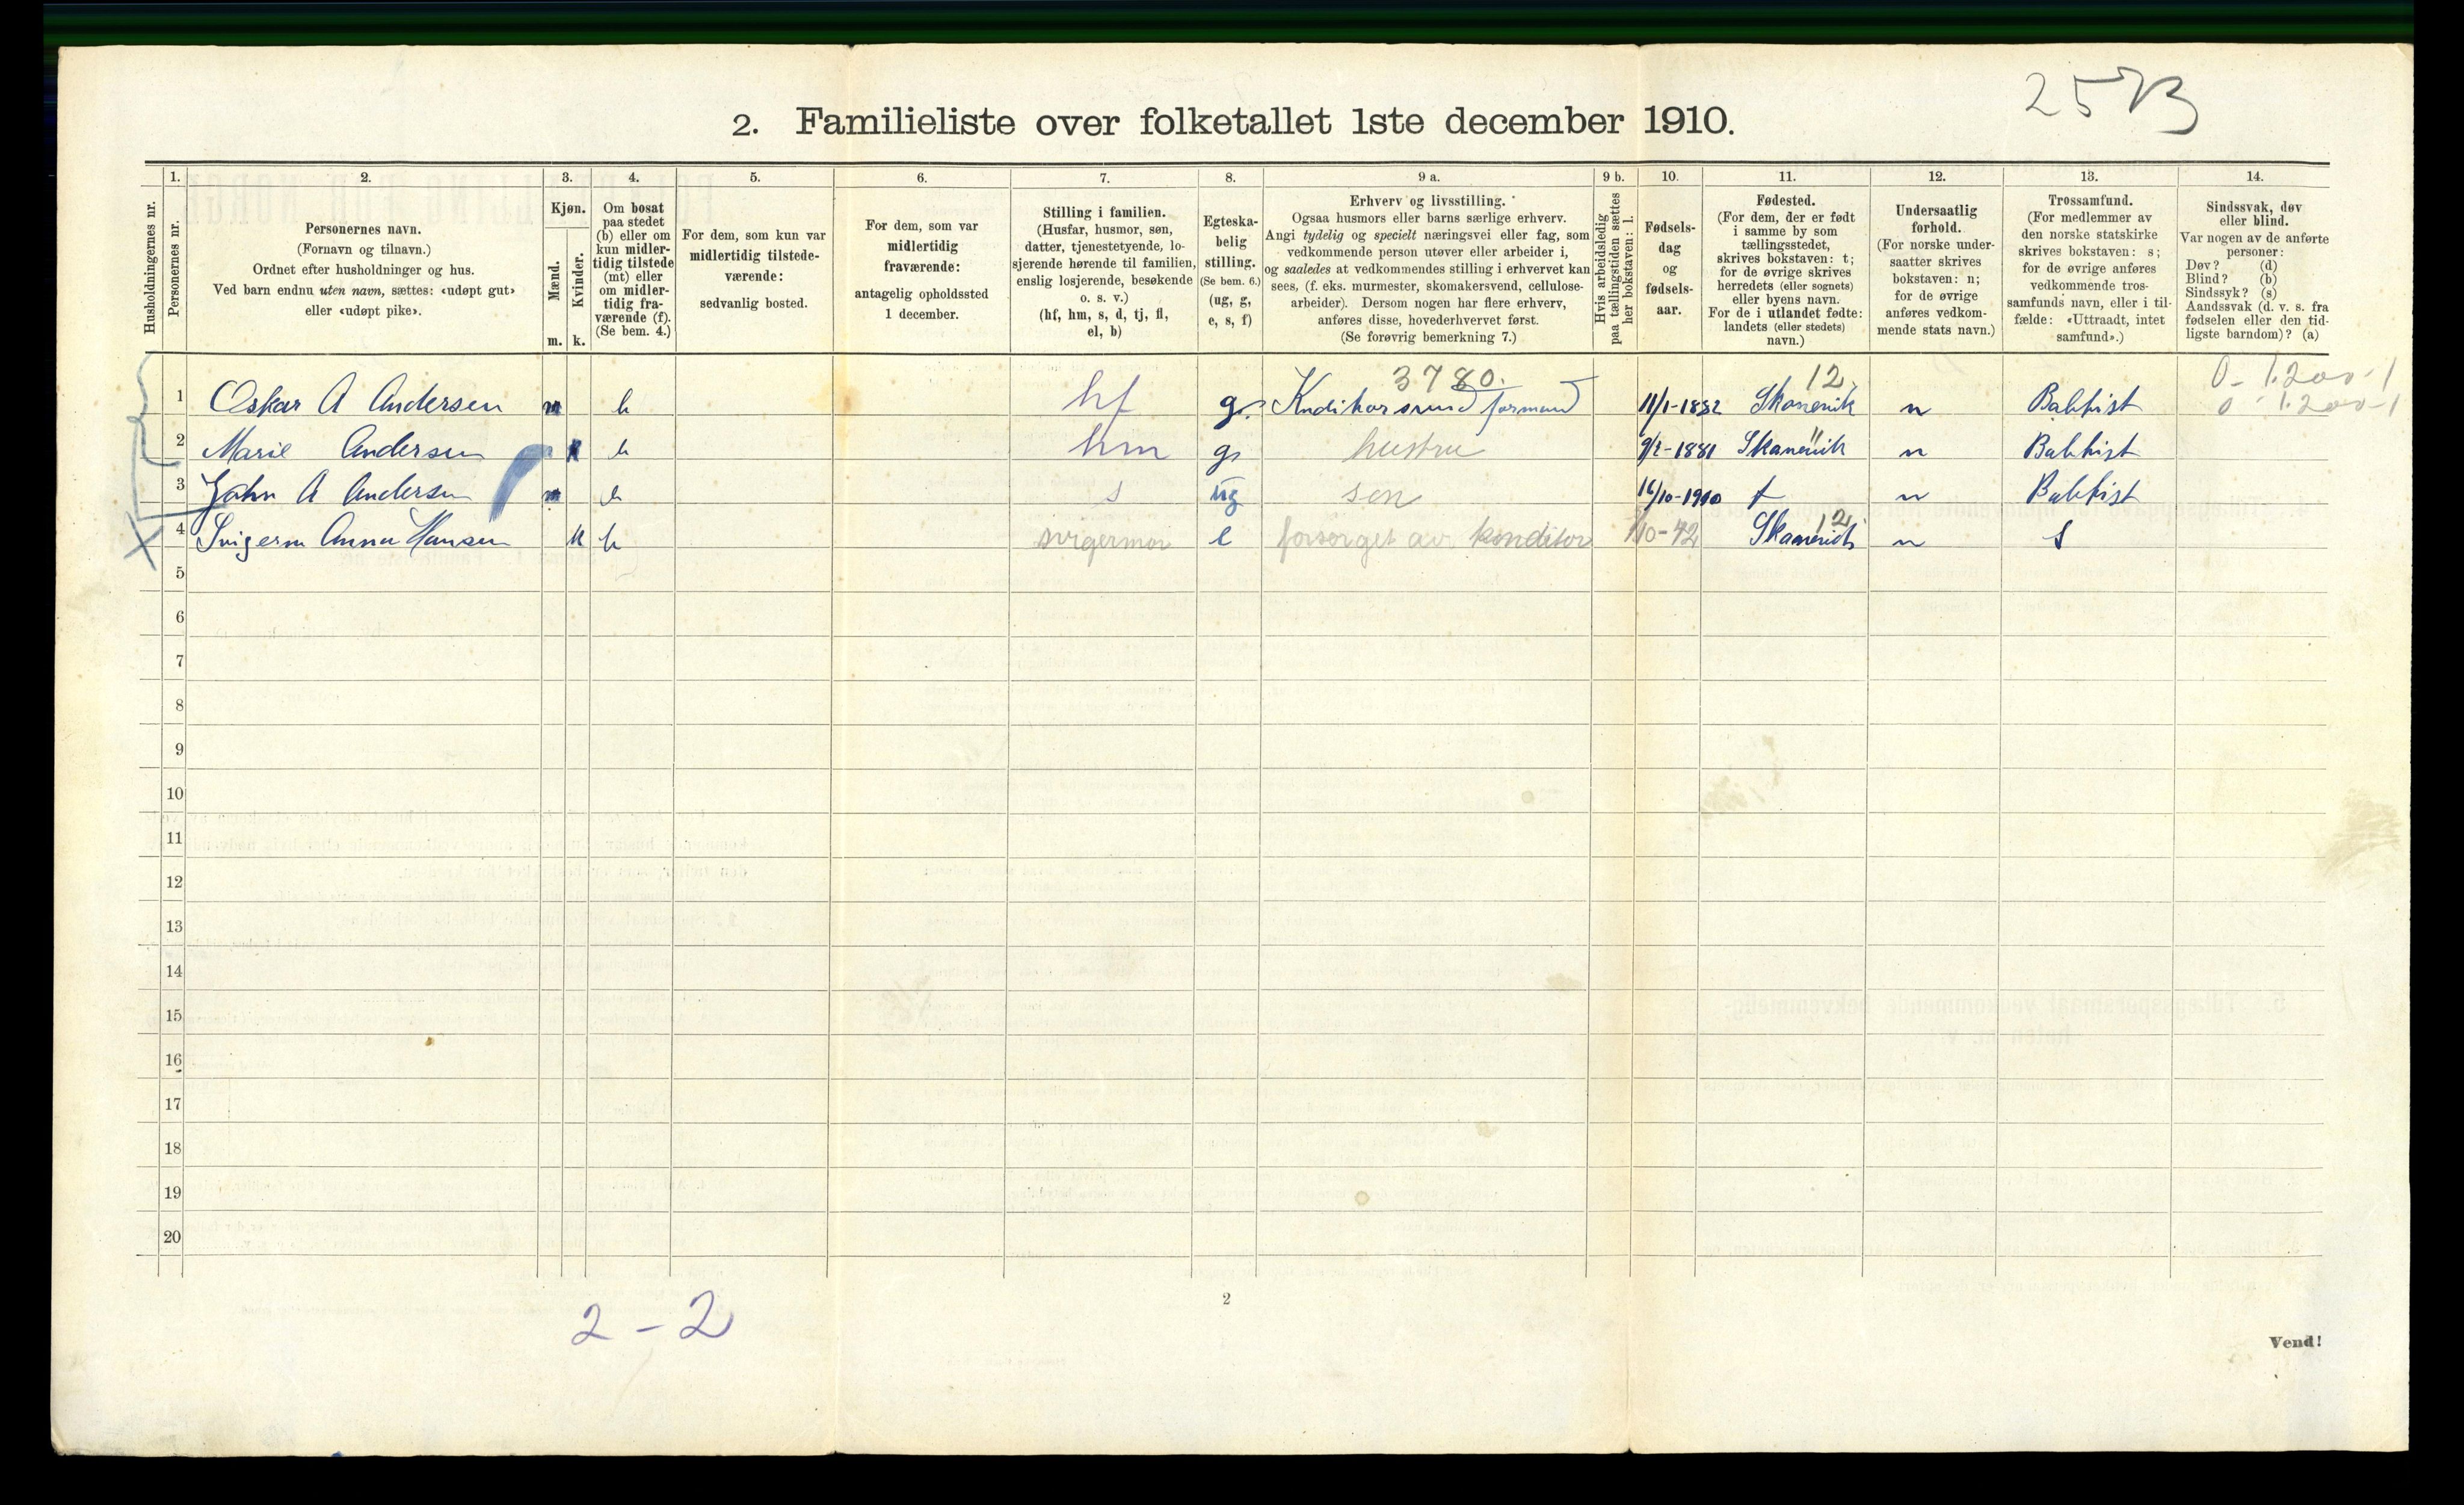 25B
2. Familieliste over folketallet 1ste december 1910.
Husholdningernes nr.
1.
Personernes nr.
2.
Personernes navn.
(Fornavn og tilnavn.)
Ordnet efter husholdninger og hus.
Ved barn endnu uten navn, sættes: «udøpt gut»
eller «udøpt pike».
3.
Kjøn.
Mænd.
Kvinder.
m. k.
4.
Om bosat
paa stedet
(b) eller om
kun midler-
tidig tilstede
(mt) eller
om midler-
tidig fra-
værende (f).
(Se bem. 4.)
5.
For dem, som kun var
midlertidig tilstede-
værende:
sedvanlig bosted.
6.
For dem, som var
midlertidig
fraværende:
antagelig opholdssted
1 december.
7.
Stilling i familien.
(Husfar, husmor, søn,
datter, tjenestetyende, lo-
sjerende hørende til familien,
enslig losjerende, besøkende
o. s. v.)
(hf, hm, s, d, tj, fl,
el, b)
8.
Egteska-
belig
stilling.
(Se bem. 6.)
(ug, g,
e, s, f)
9 a.
Erhverv og livsstilling.
Ogsaa husmors eller barns særlige erhverv.
Angi tydelig og specielt næringsvei eller fag, som
vedkommende person utøver eller arbeider i,
og saaledes at vedkommendes stilling i erhvervet kan
sees, (f. eks. murmester, skomakersvend, cellulose-
arbeider). Dersom nogen har flere erhverv,
anføres disse, hovederhvervet først.
(Se forøvrig bemerkning 7.)
9 b.
Hvis arbeidsledig
paa tællingstiden sættes
her bokstaven: l.
10.
Fødsels-
dag
og
fødsels-
aar.
11.
Fødested.
(For dem, der er født
i samme by som
tællingsstedet,
skrives bokstaven: t;
for de øvrige skrives
herredets (eller sognets)
eller byens navn.
For de i utlandet fødte:
landets (eller stedets)
navn.)
12.
Undersaatlig
forhold.
(For norske under-
saatter skrives
bokstaven: n;
for de øvrige
anføres vedkom-
mende stats navn.)
13.
Trossamfund.
(For medlemmer av
den norske statskirke
skrives bokstaven: s;
for de øvrige anføres
vedkommende tros-
samfunds navn, eller i til-
fælde: «Uttraadt, intet
samfund».)
14.
Sindssvak, døv
eller blind.
Var nogen av de anførte
personer:
Døv? (d)
Blind? (b)
Sindssyk? (s)
Aandssvak (d. v. s. fra
fødselen eller den tid-
ligste barndom)? (a)
3780. 12 0 - 1.200 - 1
1 Oskar A Andersen m b hf g. formand 11/1-1882 Skonevik n Babtist 0 - 1.200 - 1
2 Marie Andersen k b hm g hustru 9/2-1881 Skanevik n Babtist
3 John A Andersen m b s ug søn 16/10-1910 t n Babtist
12
4 Svigerm Anna Hansen k b svigermor e forsørget av konditor 10-42 Skanevich n S
5
6
7
8
9
10
11
12
13
14
15
16
17
18
19
20
2 - 2
2
Vend!